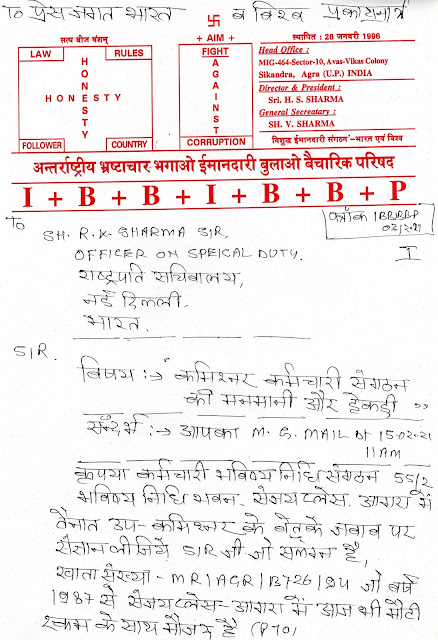 TO प्रेस जगत भारत व विश्व प्रकाशनार्थ
सत्य बीज मंत्राम्
LAW RULES
HONESTY
HONESTY
FOLLOWER COUNTRY
+ AIM +
FIGHT
AGAINST
CORRUPTION
स्थापित : 28 जनवरी 1996
Head Office :
MIG-464-Sector-10, Avas-Vikas Colony
Sikandra, Agra (U.P.) INDIA
Director & President :
Sri. H. S. SHARMA
General Secreatary :
SH. V. SHARMA
'विशुद्ध ईमानदारी संगठन'-भारत एवं विश्व
अन्तर्राष्ट्रीय भ्रष्टाचार भगाओ ईमानदारी बुलाओ बैचारिक परिषद
I + B + B + I + B + B + P
TO
क्रमांक IBBIBBP
02/2-21
I
SH. R. K. SHARMA SIR,
OFFICER ON SPEICAL DUTY.
राष्ट्रपति सचिवालय,
नई दिल्ली.
भारत.
SIR.
विषय :→ "कमिश्नर कर्मचारी संगठन
की मनमानी और हेकड़ी"
सन्दर्भ :→ आपका M. G. MAIL Dt 15-02-21
11AM
कृपया कर्मचारी भविष्य निधि संगठन 55/2
भविष्य निधि भवन. संजय प्लेस. आगरा में
तैनात उप-कमिश्नर के बेतुके जवाब पर
संज्ञान लीजिये SIR जी जो संलग्न है,
खाता संख्या - MR/AGR/B726/24 जो वर्ष
1987 से संजय प्लेस-आगरा में आज भी मोटी
रकम के साथ मौजूद है (P.T.O)